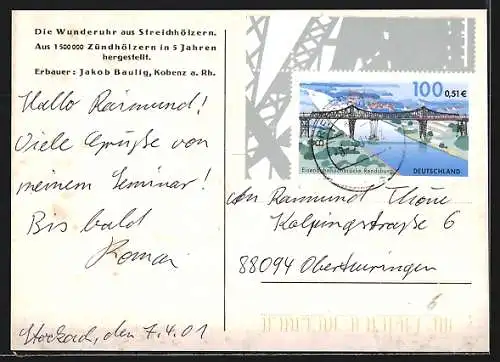 Die Wunderuhr aus Streichhölzern.
Aus 1 500 000 Zündhölzern in 5 Jahren
hergestellt.
Erbauer: Jakob Baulig, Kobenz a. Rh.
Hallo Raimund!
Viele Grüße von
meinem Seminar!
Bis bald
Roman
Stockach, den 7.4.01
100 0,51 €
Eisenbahnhochbrücke Rendsburg
DEUTSCHLAND
An Raimund Thöne
Kolpingstraße 6
88094 Oberteuringen
6